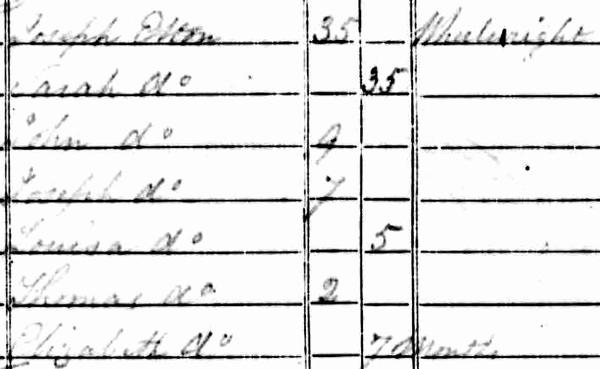 Joseph 35 Wheelwright
Sarah do 35
John do 9
Joseph do 7
Louisa do 5
Thomas do 2
Elizabeth do 7 Months